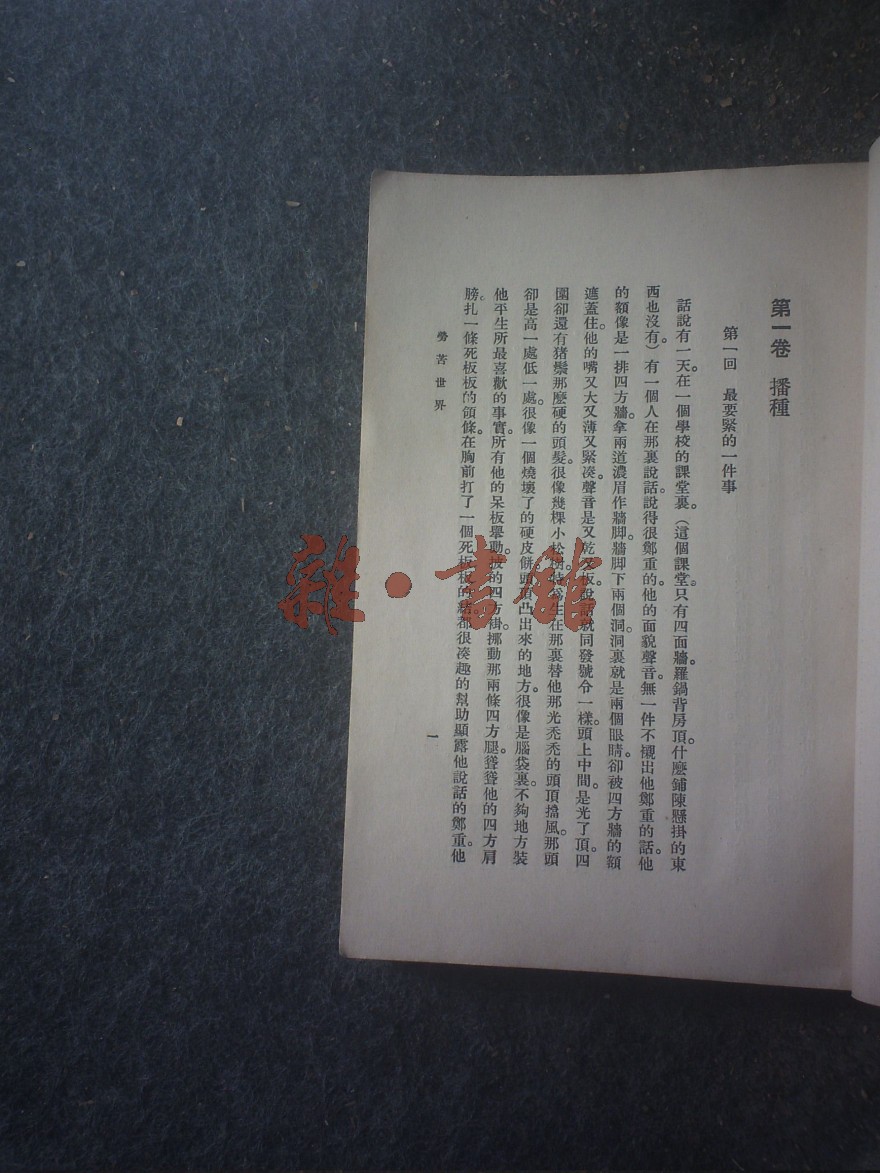 第一卷　播種
第一回　最要緊的一件事
話說有一天。在一個學校的課堂裏。(這個課堂只有四面牆。羅鍋背房頂。什麽鋪陳懸掛的東
西也沒有)。有一個人在那裏說話。說得很鄭重的。他的面貌聲音。無一件不襯出他鄭重的話。他
的額像是一排四方牆。拿兩道濃眉作牆脚。牆脚下兩個洞。洞裏就是兩個眼睛。卻被四方牆的額
遮蓋住。他的嘴又大又薄又緊湊。聲音是又乾又板。說話就同發號令一樣。頭上中間。是光了頂。四
圍卻還有猪鬃那麽硬的頭髮。很像幾棵小松樹。特爲生在那裏。替他那光禿禿的頭頂擋風。那頭
卻是高一處低一處。很像一個燒壞了的硬皮餅。頭頂凸出來的地方。很像是腦袋裏。不夠地方裝
他平生所最喜歡的事實。所有他的呆板舉動。披的四方褂。挪動那兩條四方腿。聳聳他的四方肩
膀。扎一條死板板的領條。在胸前打了一個死板板的結。都很湊趣的幫助顯露他說話的鄭重。他
勞苦世界
一
雜·書館